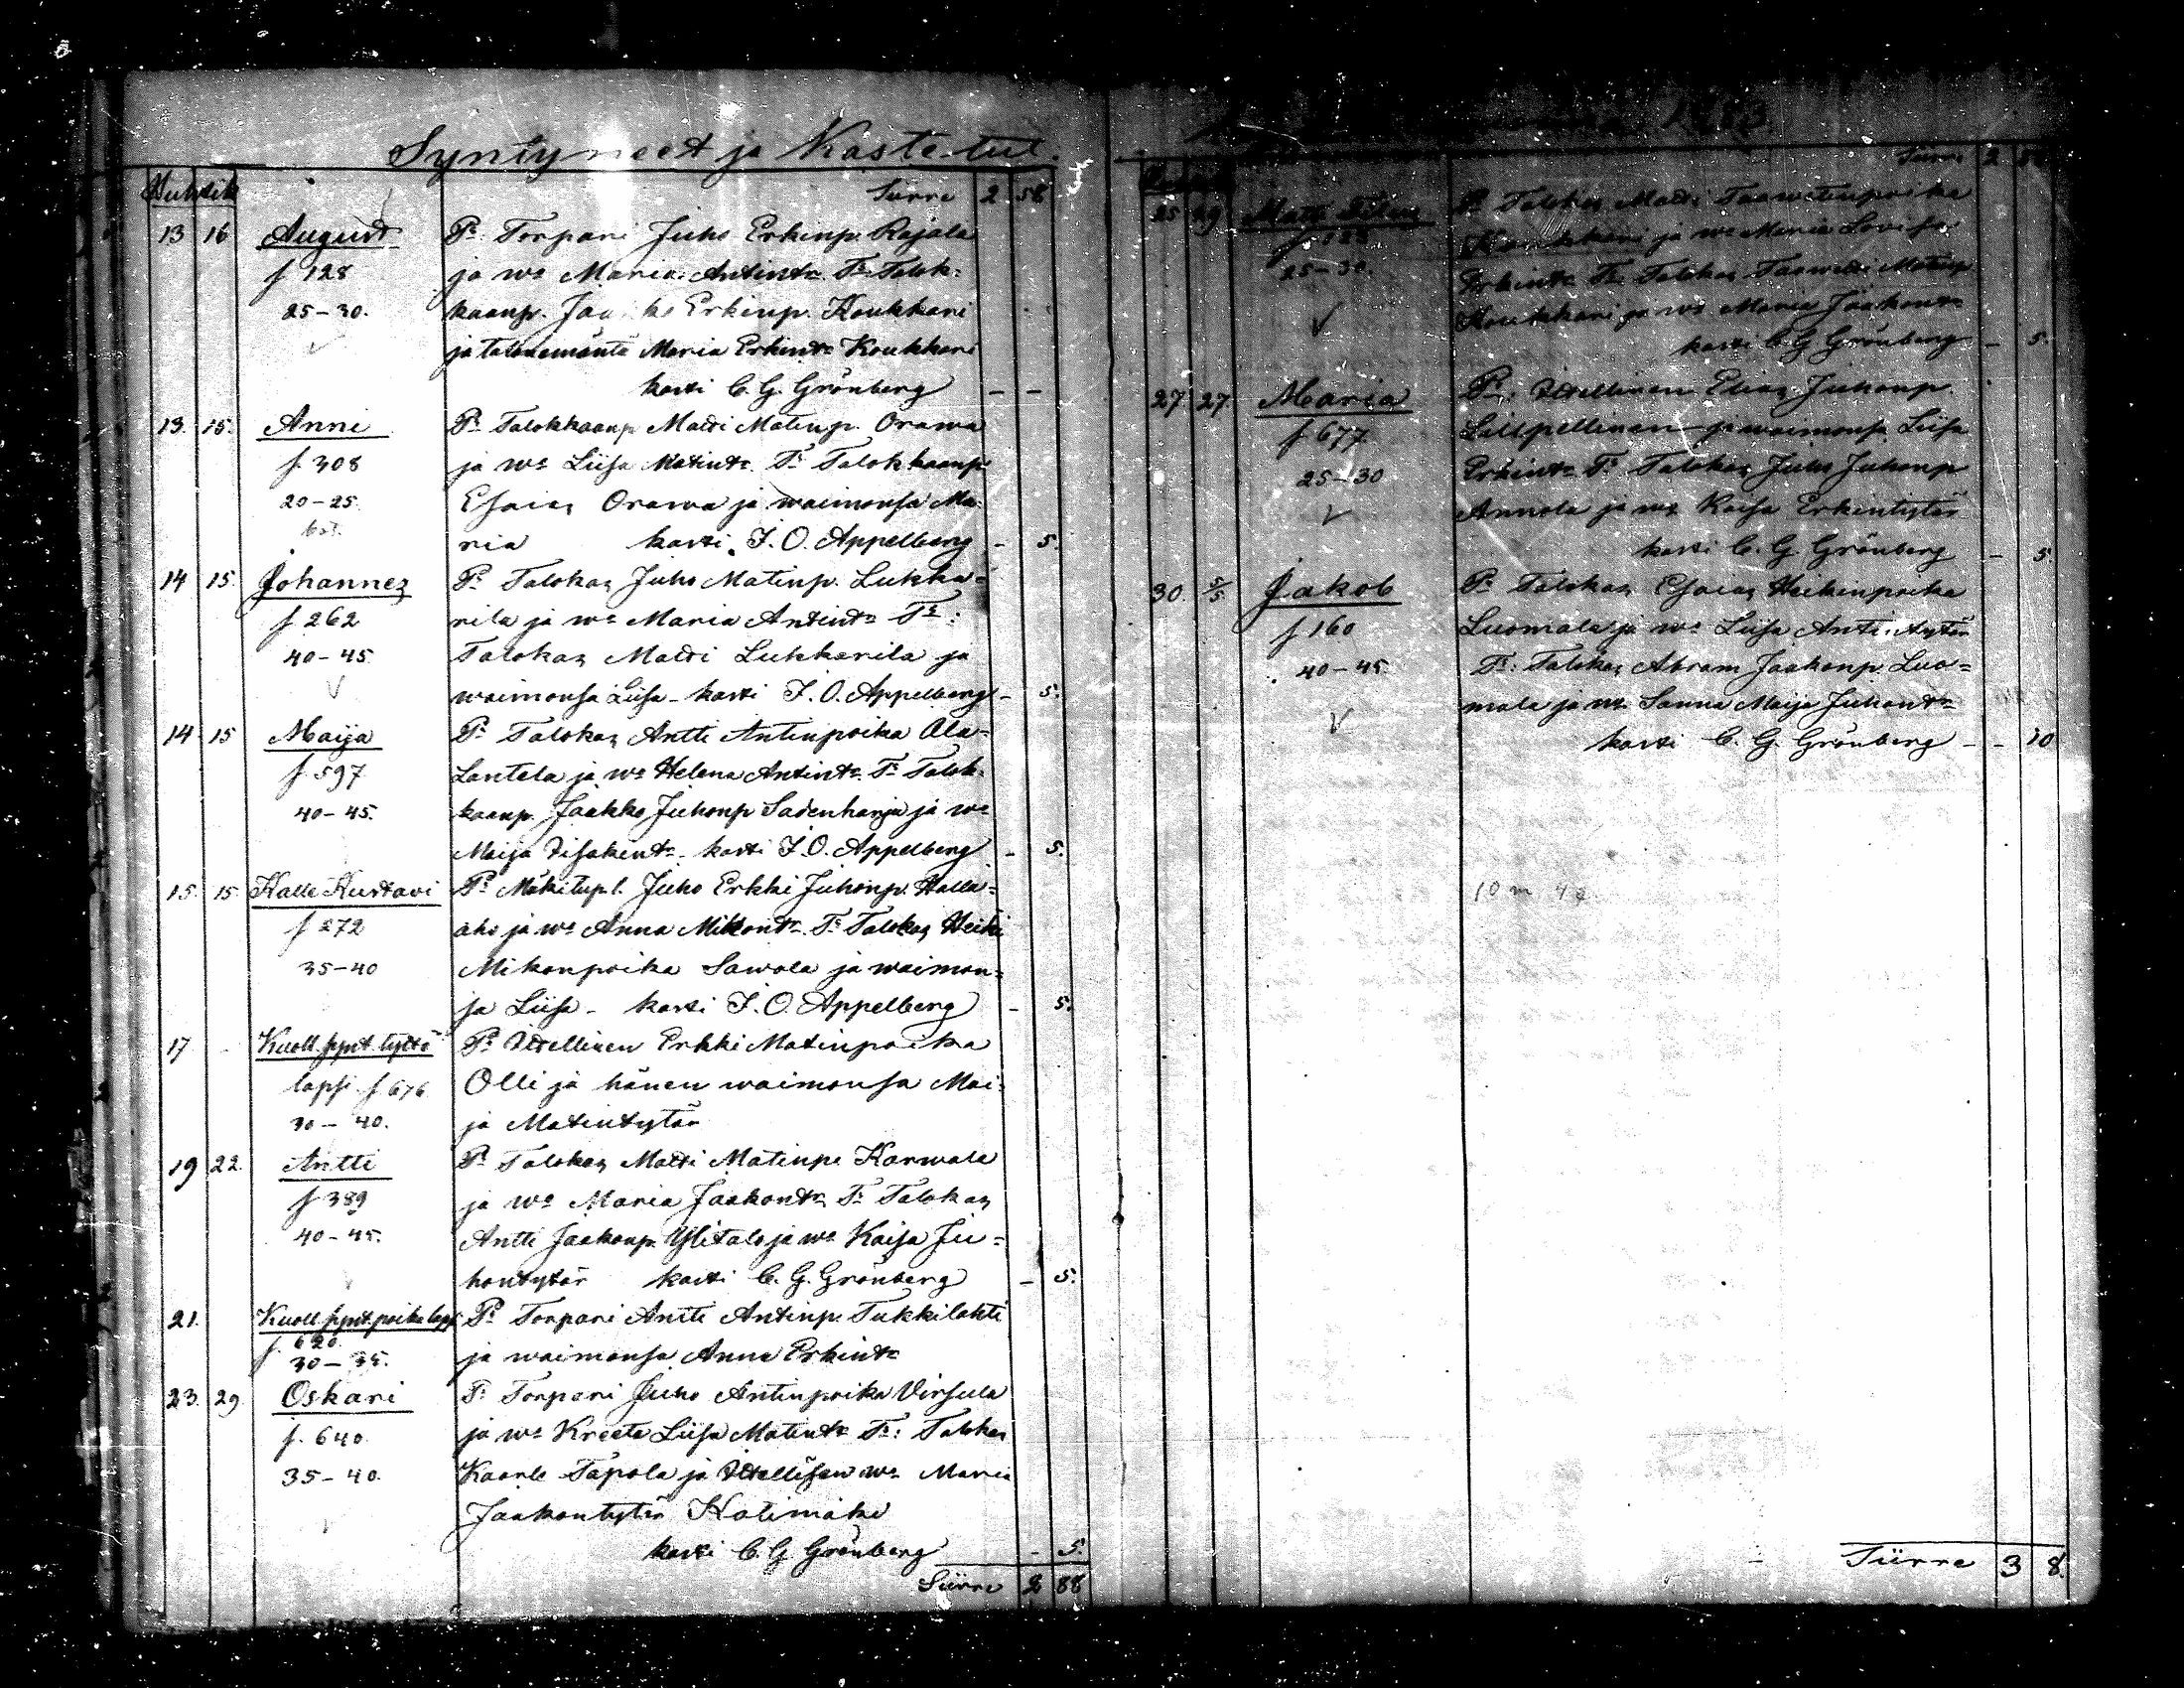 Syntyneet ja Kastetut.
Huhtik
Siirre 2 58
13 16 August P: Torpari Juho Erkinp. Rajala
f 128 ja wa Maria Antintr. T: Talok-
25-30. kaanp. Jaakko Erkinp. Koukkari
ja talonemäntä Maria Erkintr Koukkari
kasti C. G. Grönberg - -
13. 15. Anni P: Talokkaanp Matti Matinp. Orawa
f 308 ja wa Liisa Matintr. T: Talokkaanp
20-25. Esaias Orawa ja waimonsa Ma-
ria kasti J. O. Appelberg - 5.
14 15. Johannes P: Talokas Juho Matinp. Lukka-
f 262 rila ja wa Maria Antintr T:
40-45. Talokas Matti Lukkarila ja
waimonsa Liisa - kasti J. O. Appelberg - 5.
14 15 Maija P: Talokas Antti Antinpoika Ala-
f. 597 Lantela ja wa Helena Antintr. T: Talok-
40-45. kaanp. Jaakko Juhonp Sadenharja ja wa
Maija Iisakintr - kasti J. O. Appelberg - 5.
15. 15. Kalle Kustavi P: Mäkitupl. Juho Erkki Juhonp. Halla-
f 272 aho ja wa Anna Mikontr. T: Talokas Heikki
35-40 Mikonpoika Sawola ja waimon-
sa Liisa - kasti J. O. Appelberg - 5.
17 - Kuoll. synt. tyttö P: Itellinen Erkki Matinpoika
lapsi f 676 Olli ja hänen waimonsa Mai-
30-40. ja Matintytär
19 22. Antti P: Talokas Matti Matinp. Karwala
f 389 ja wa Maria Jaakontr. T: Talokas
40-45. Antti Jaakonp. Ylitalo ja wa Kaisa Ju-
hontytär kasti C. G. Grönberg - 5.
21. Kuoll. synt. poika laps P: Torpari Antti Antinp. Tukkilahti
f. 620. ja waimonsa Anna Erkintr
30-35.
23. 29 Oskari P: Torpari Juho Antinpoika Virsula
f. 640. ja wa Kreeta Liisa Matintr T: Talokas
35-40. Kaarle Tapola ja Itellisen wa Maria
Jaakontytär Halimäki
kasti C. G. Grönberg - 5.
Siirre 2 88
Siirre 2
25 29 Matti P: Talokas Matti Taawetinpoika
Koukkari ja wa Maria Lovisa
25-30. Erkintr T: Talokas Taawetti Matinp
Koukkari ja wa Maria Jaakontr
kasti C. G Grönberg - 5.
27 27 Maria P: Itellinen Elias Juhonp.
f 677 ja waimonsa Liisa
25-30 Erkintr T: Talokas Juho Juhonp
Annola ja wa Kaisa Erkintytär
kasti C. G. Grönberg - 5.
30. 5/5 Jakob P: Talokas Esaias Heikinpoika
f 160 Luomala ja wa Liisa Antintytär
40-45. T: Talokas Abram Jaakonp. Luo-
mala ja wa Sanna Maija Juhontr
kasti C. G. Grönberg - - 10
10 m 4
Siirre 3 8.